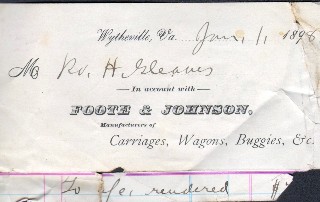 Wytheville, Va. Jan. 1, 1898
M Ro. H. Gleaves
In account with
FOOTE & JOHNSON,
Manufacturers of
Carriages, Wagons, Buggies, &c.
To rendered $